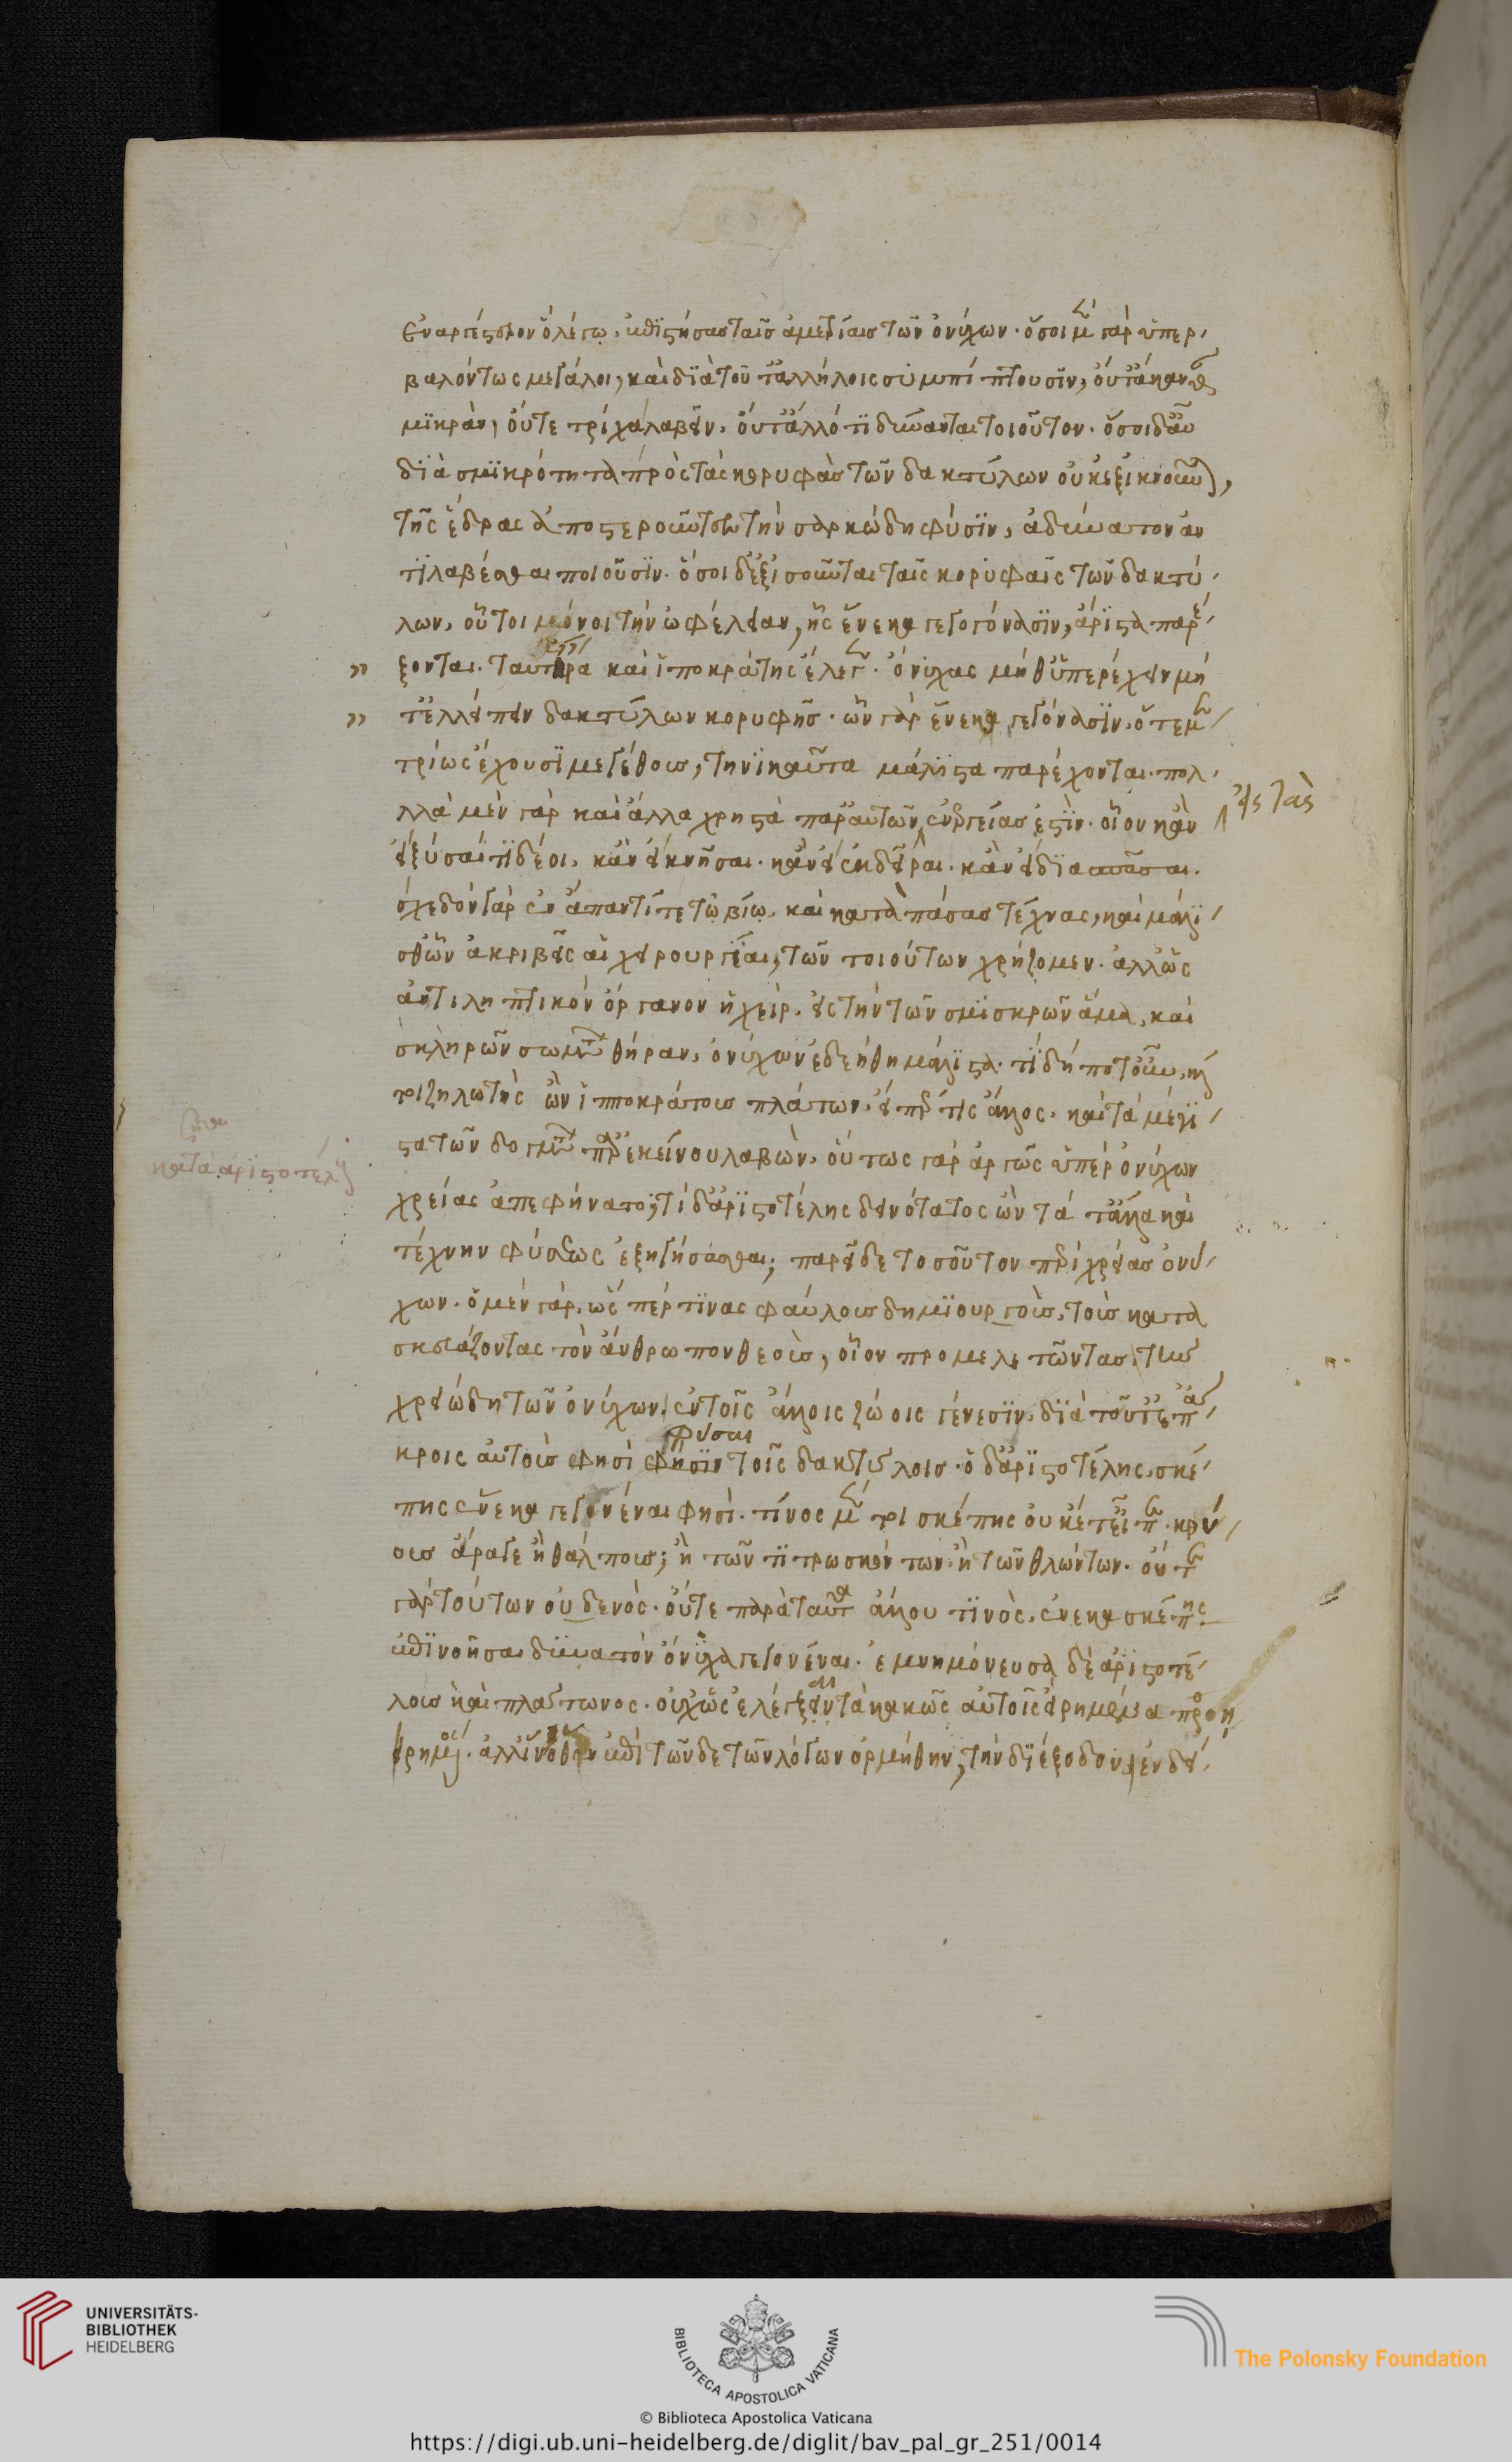 ἐναργέστερον ὃ λέγω, ἐπιστήσας ταῖς ἀμετρίαις τῶν ὀνύχων. ὅσοι μὲν γὰρ ὑπερ
βαλόντως μεγάλοι, καὶ διὰ τοῦτ' ἀλλήλοις συμπίπτουσϊν, οὔτ' ἄκανθαν
μϊκρὰν, οὔτε τρίχα λαβεῖν. οὔτ' ἄλλό τϊ δύνανται τοιοῦτον. ὅσοι δ' αὖ
δϊὰ σμϊκρότητα πρὸς τὰς κορυφὰς τῶν δακτύλων οὐκ ἐξικνοῦνται,
τῆς ἕδρας ἀποστεροῦντες τὴν σαρκώδη φύσϊν, ἀδύνατον ἀν
τϊλαβέσθαι ποιοῦσϊν. ὅσοι δ' ἐξισοῦνται ταῖς κορυφαῖς τῶν δακτύ
λων, οὗτοι μόνοι τὴν ὠφέλειαν, ἧς ἕνεκα γεγόνασϊν, ἄρϊστα παρέ
ξονται. ταῦτ' ἄρα καὶ ἱποκράτης ἔλεγεν. ὄνυχας μήθ' ὑπερέχειν μή
τ' ἐλλείπειν δακτύλων κορυφῆς. ὧν γὰρ ἕνεκα γεγόνασϊν, ὅτε με
τρίως ἔχουσϊ μεγέθους, τηνϊκαῦτα μάλϊστα παρέχονται. πολ
λλὰ μὲν γὰρ καὶ ἄλλα χρηστὰ παρ' αὐτῶν ἐνεργείας ἐστϊν. οἷον κἂν
εἰς τὰς
εἰ ξύσαί τϊ δέοι, κἂν εἰ κνῆσαι. κἂν εἰ ἐκδεῖραι. κἂν εἰ δϊασπᾶσαι.
σχεδὸν γὰρ ἐν ἅπαντί τε τῷ βίῳ. καὶ κατὰ πάσας τέχνας, καὶ μάλϊ
σθ' ὧν ἀκριβεῖς αἱ χειρουργίαι, τῶν τοιούτων χρῄζομεν. ἀλλ' ὡς
ἀντιληπτικὸν ὄργανον ἡ χεὶρ. εἰς τὴν τῶν σμϊκρῶν ἅμα, καὶ
σκληρῶν σωμάτων θήραν, ὀνύχων ἐδεήθη μάλϊστα. τί δή ποτ' οὖν, κ
ζηλωτὴς ὢν ἱπποκράτους πλάτων. εἴπερ τις ἄλλος. καὶ τὰ μέγϊ
στα τῶν δογμάτων παρ' ἐκείνου λαβὼν, οὕτως γὰρ ἀργῶς ὑπὲρ ὀνύχων
κατὰ ἀρϊστοτέλους
χρείας ἀπεφήνατο; τί δ' ἀρϊστοτέλης δεινότατος ὢν τά τ' ἄλλα καὶ
τέχνην φύσεως ἐξηγήσασθαι; παρεῖδε τοσοῦτον περὶ χρείας ὀνύ
χων. ὁ μὲν γὰρ, ὥς πέρ τϊνας φαύλους δημϊουργοὺς, τοὺς κατα
σκευάζοντας τὸν ἄνθρωπον θεοὺς, οἷον προμελετῶντας τὴν
χρειώδη τῶν ὀνύχων, ἐν τοῖς ἄλλοις ζώοις γένεσϊν. δϊὰ τοῦτ' ἐπ' ἄ
κροις αὐτοὺς φησὶ φῆσϊν τοῖς δακτύλοις. ὁ δ' ἀρϊστοτέλης, σκέ
φύσαι
πης ἕνεκα γεγονέναι φησὶ. τίνος μέν τοι σκέπης οὐκέτ' εἶπεν. κρύ
ους ἆραγε ἢ θάλπους; ἢ τῶν τϊτρωσκόντων ἢ τῶν θλώντων. οὔτε
γὰρ τούτων οὐδενὸς. οὔτε παρὰ ταῦτα ἄλλου τϊνὸς. ἕνεκα σκέπης
ἐπϊνοῆσαι δϋνατὸν ὄνϋχα γεγονέναι. ἐμνημόνευσα δὲ ἀρϊστοτέ
λους καὶ πλάτωνος. οὐχ ὡς ἐλέγξαι τὰ κακῶς αὐτοῖς εἰρημένα προῃ
ρημένος. ἀλλ' ἵν' ὅθεν ἐπὶ τῶνδε τῶν λόγων ὁρμήθην, τὴν δϊέξοδον ἐνδεί